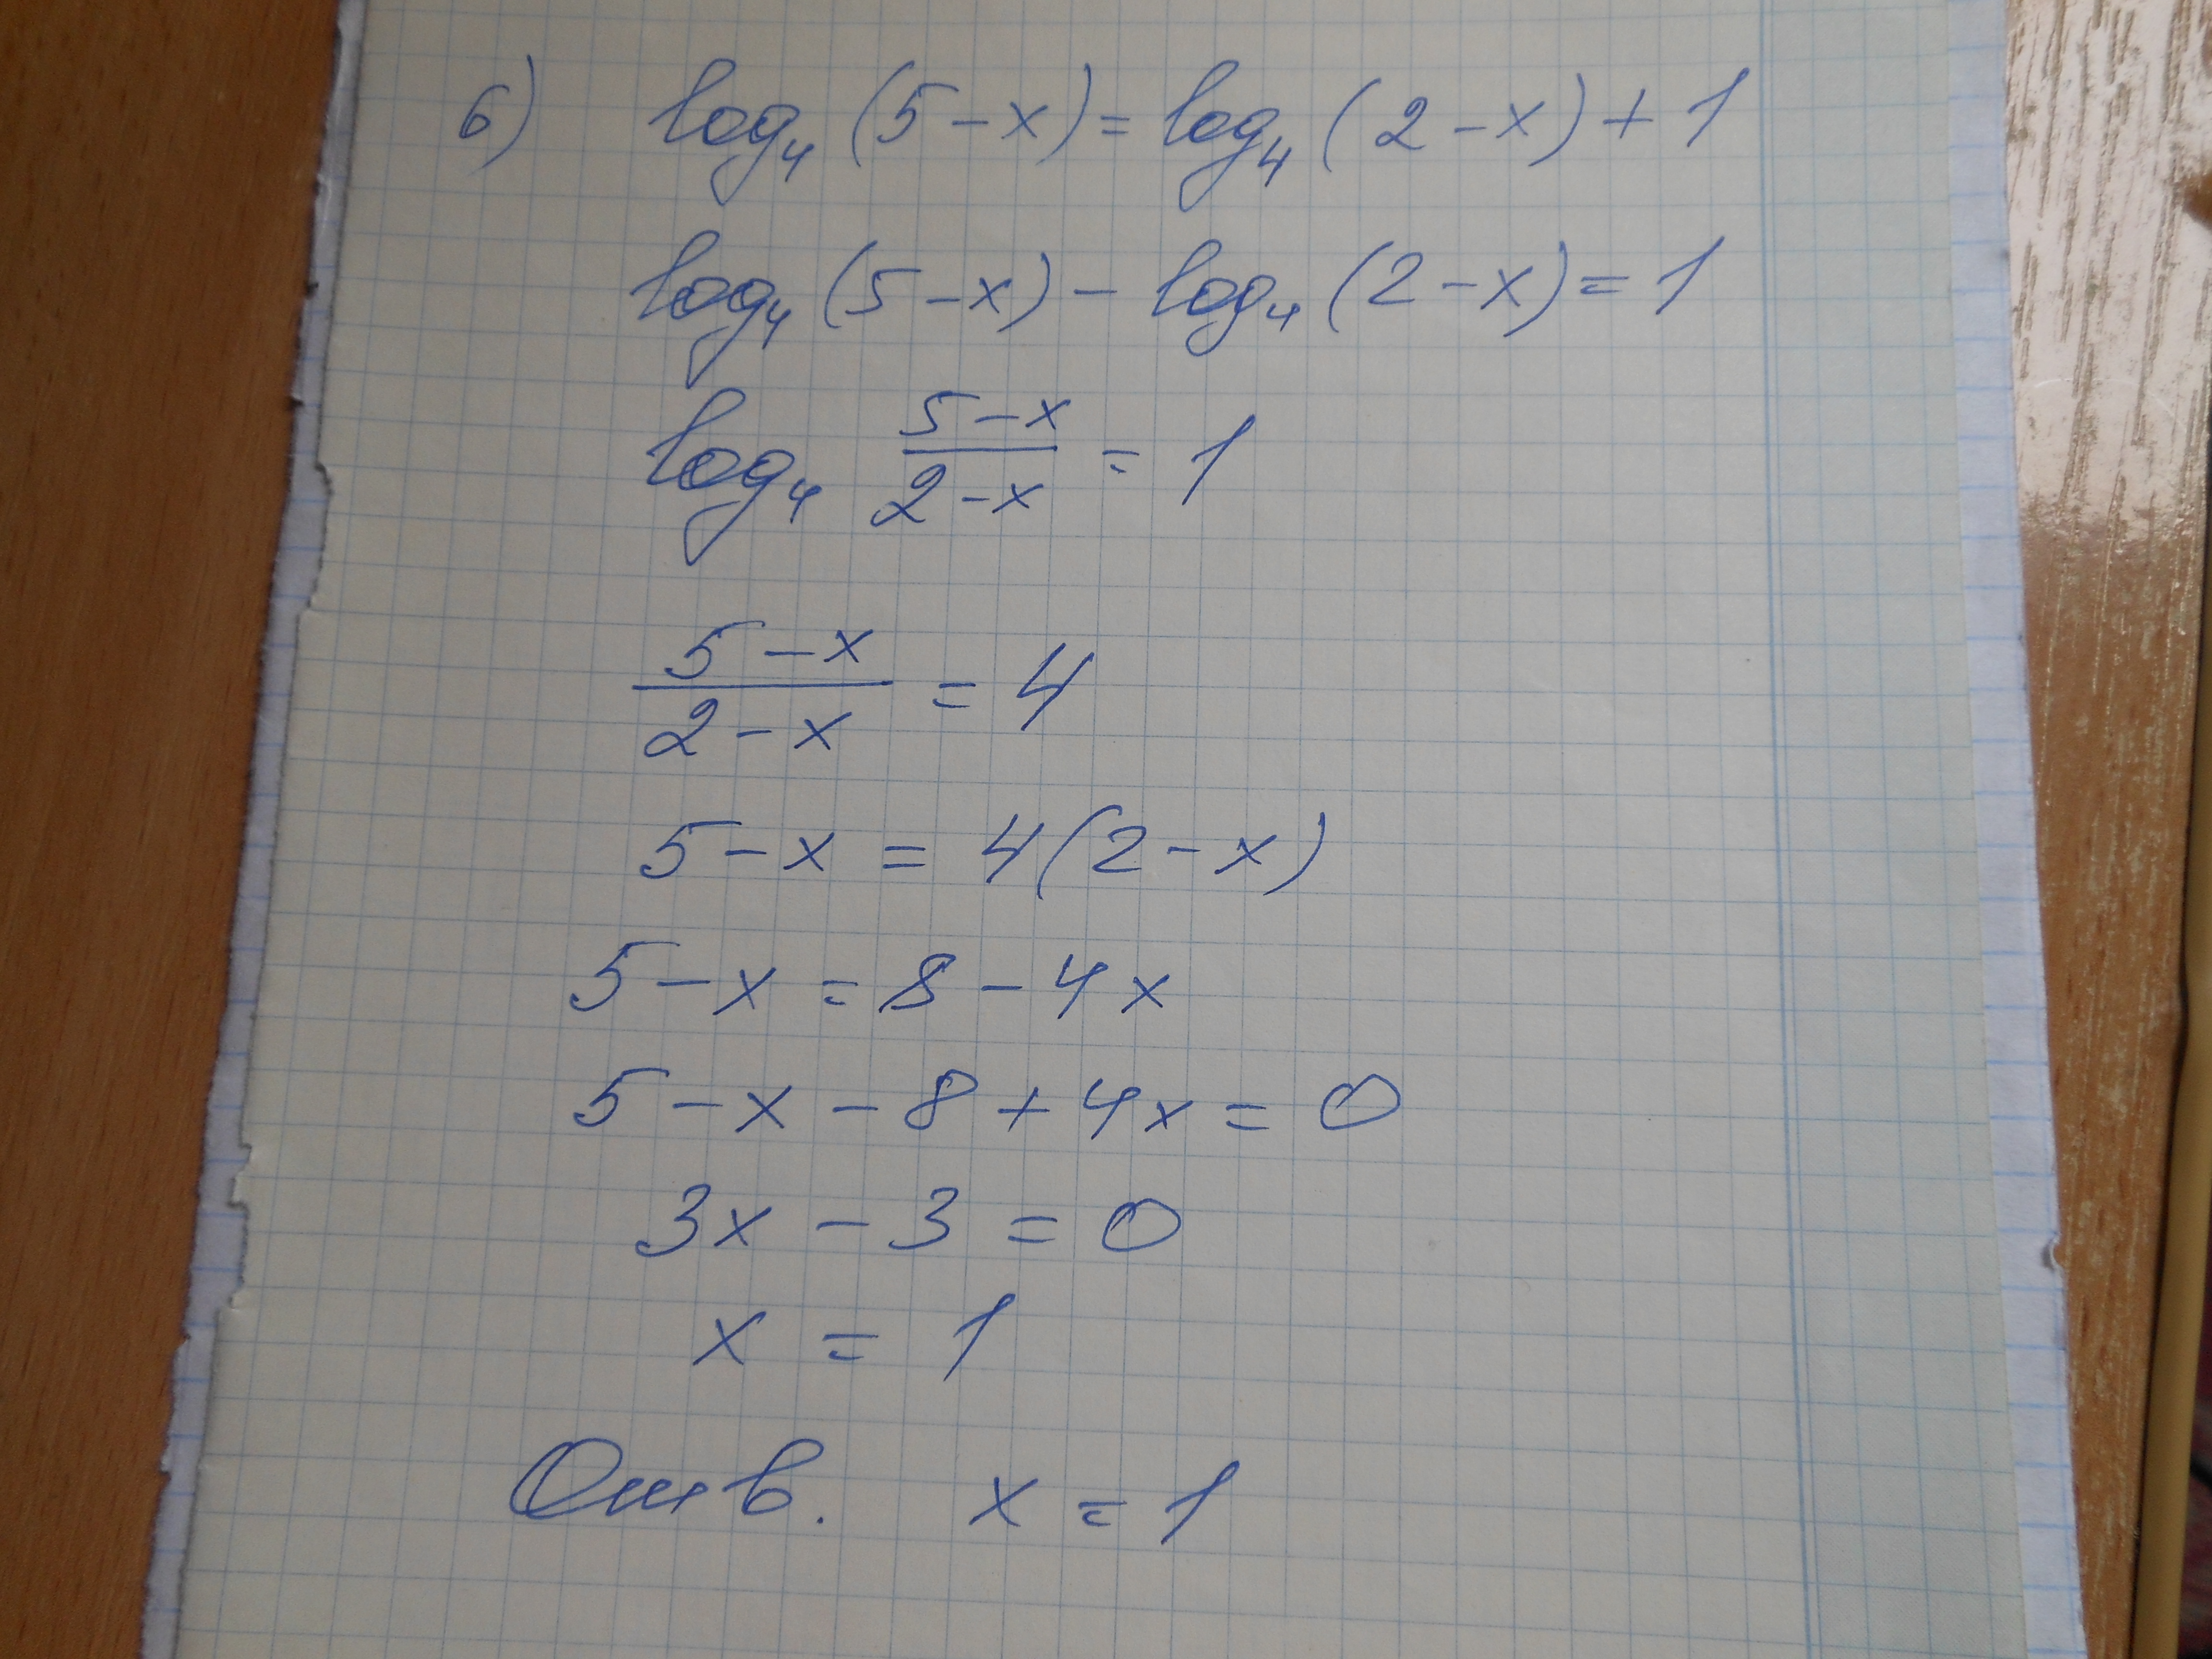 6) log₄ (5 - x) = log₄ (2 - x) + 1
log₄ (5 - x) - log₄ (2 - x) = 1
log₄ (5 - x)/(2 - x) = 1
(5 - x)/(2 - x) = 4
5 - x = 4(2 - x)
5 - x = 8 - 4x
5 - x - 8 + 4x = 0
3x - 3 = 0
x = 1
Отв. x = 1